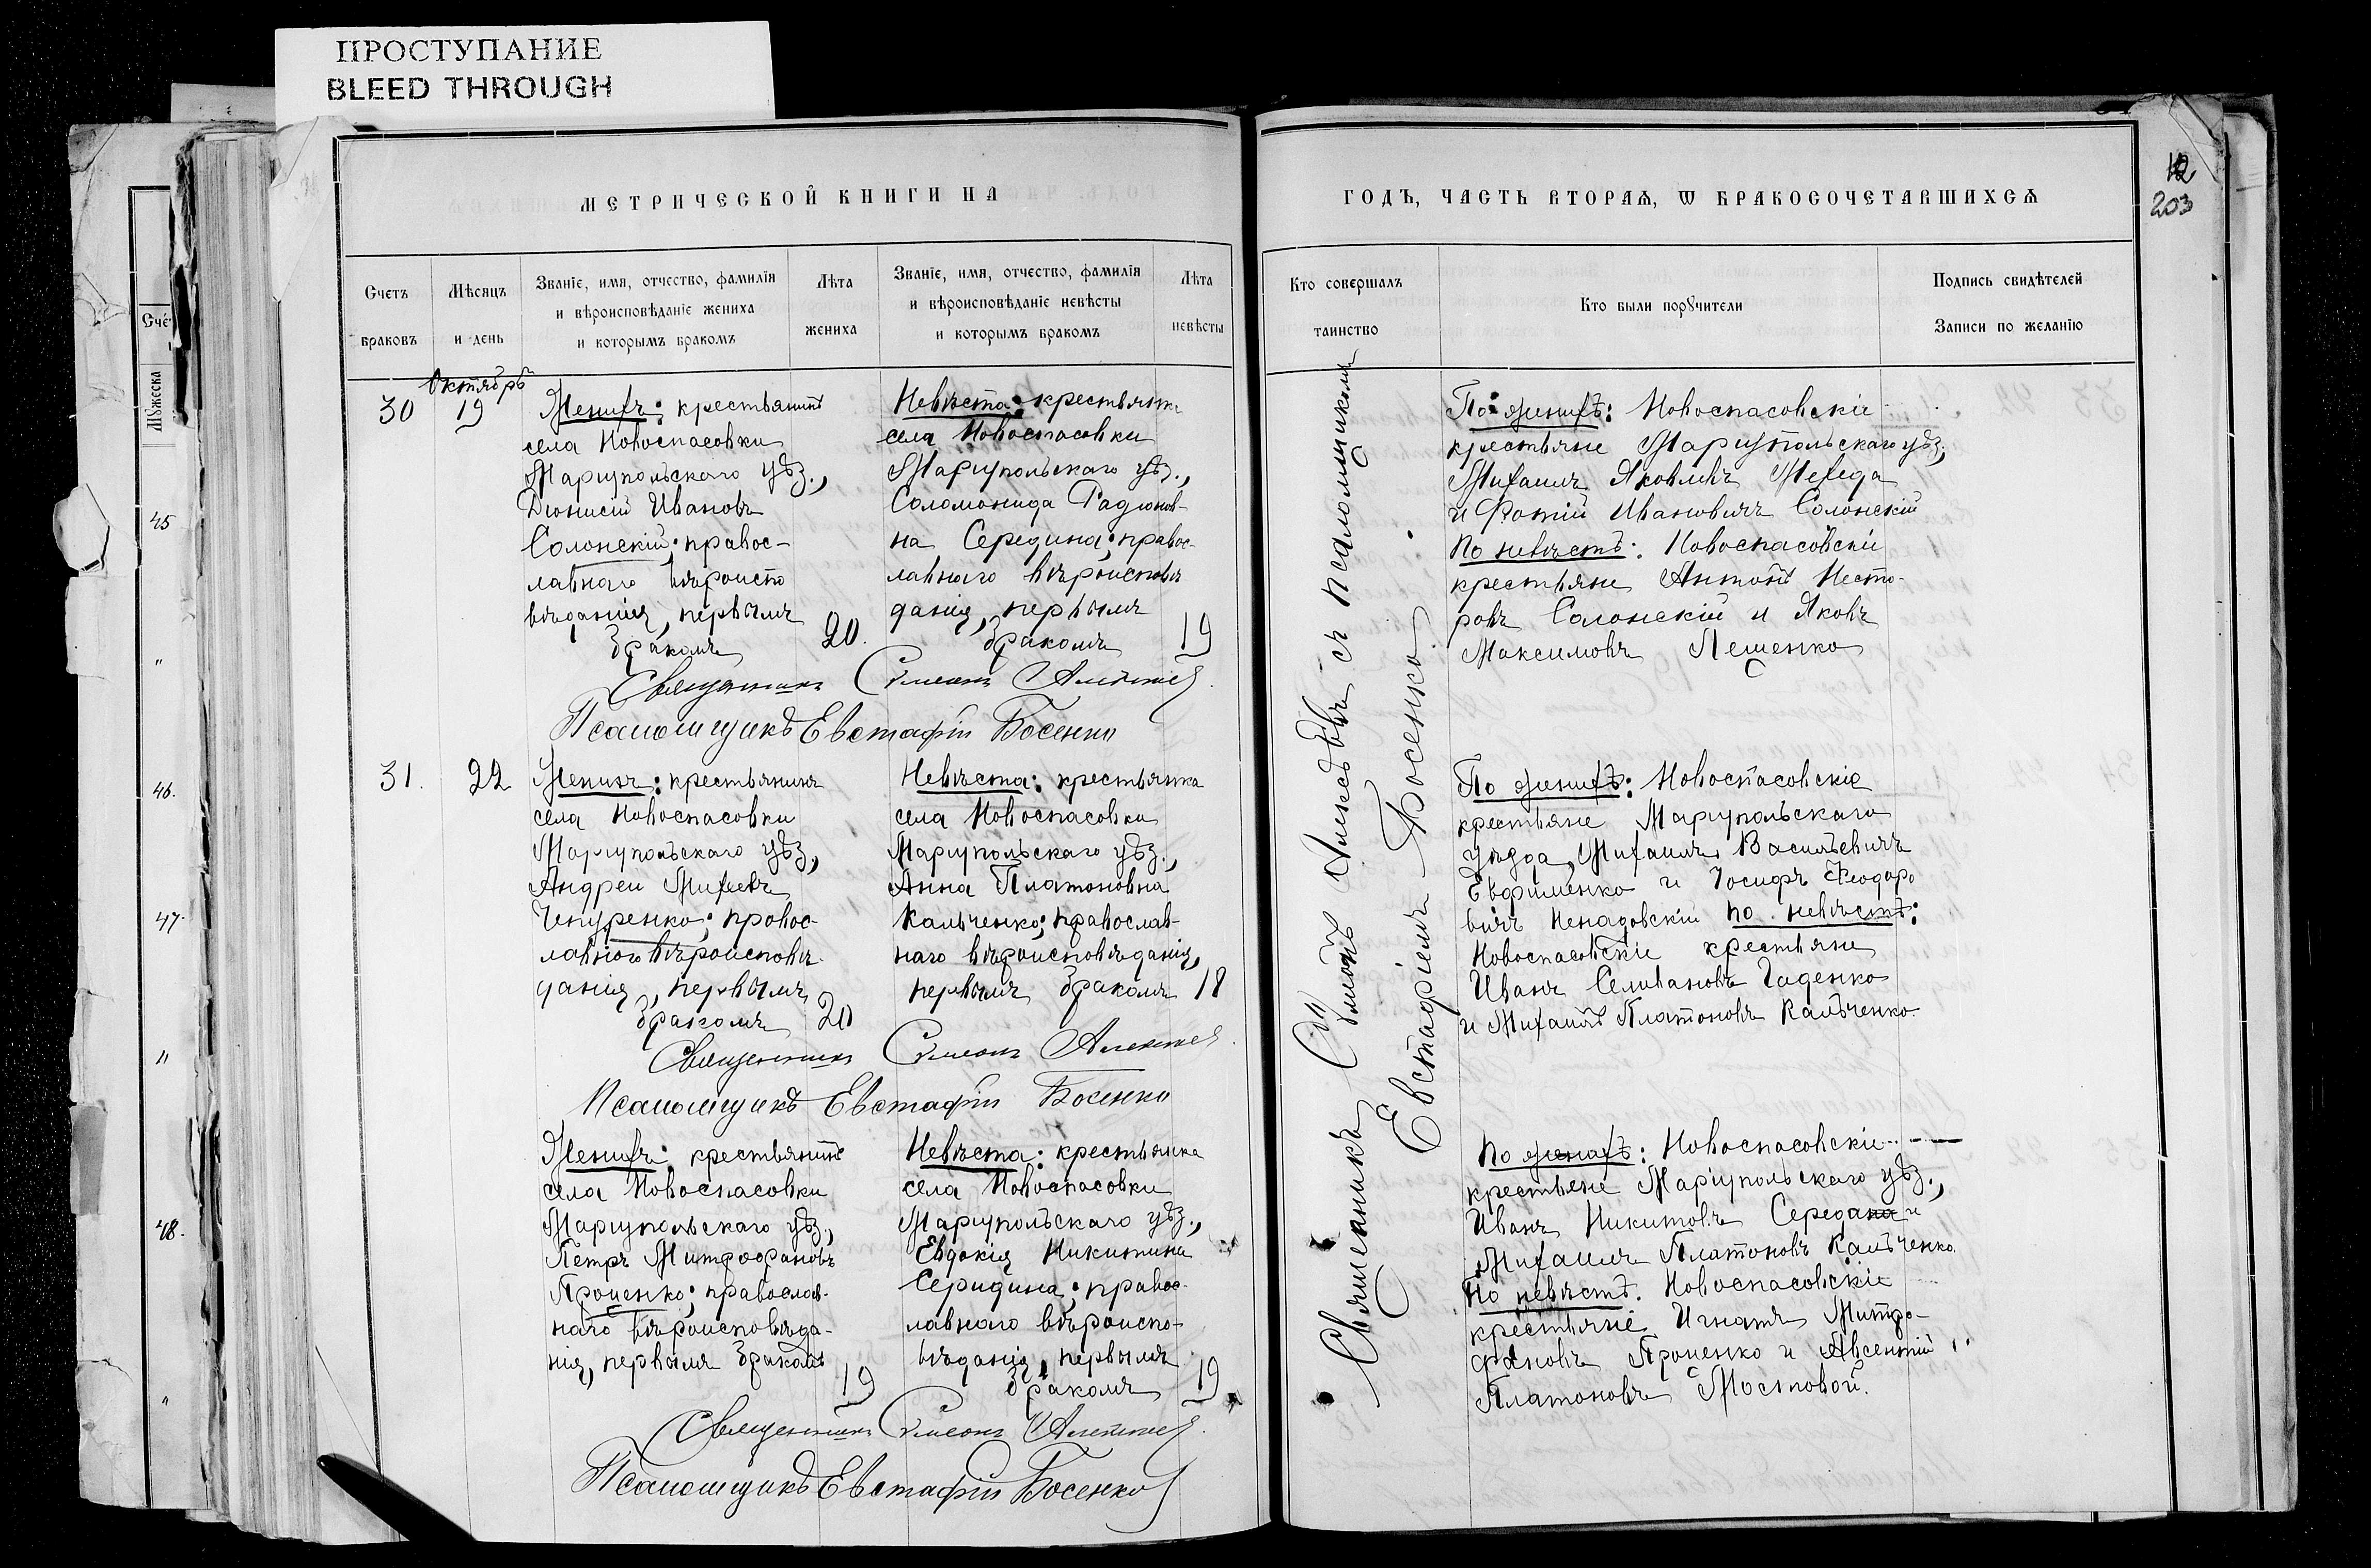 ПРОСТУПАНИЕ
BLEED THROUGH
МЕТРИЧЕСКОЙ КНИГИ НА
Счетъ браковъ
Мѣсяцъ и день
Званіе, имя, отчество, фамилія
и вѣроисповѣданіе жениха
и которымъ бракомъ
Лѣта жениха
Званіе, имя, отчество, фамилія
и вѣроисповѣданіе невѣсты
и которымъ бракомъ
Лѣта невѣсты
Октябрь
30
19
Женихъ: крестьянинъ
села Новоспасовки
Маріупольскаго уѣз.,
Діонисій Ивановъ
Солонскій; правос-
лавнаго вѣроиспо
вѣданія, первымъ
бракомъ
20.
Невѣста: крестьянка
села Новоспасовки
Маріупольскаго уѣз.,
Соломонида Радіонов-
на Середина; правос-
лавнаго вѣроисповѣ
данія, первымъ
бракомъ
19
Священникъ Симеонъ
Псаломщикъ Евстафій Босенко
31.
22
Женихъ: крестьянинъ
села Новоспасовки
Маріупольскаго уѣз.,
Андрей Михеевъ
Чепуренко; правос-
лавного вѣроисповѣ-
данія, первымъ
бракомъ
20
Невѣста: крестьянка
села Новоспасовки
Маріупольскаго уѣз.,
Анна Платоновна
Кальченко; православ-
наго вѣроисповѣданія,
первымъ бракомъ
18
Священникъ Симеонъ
Псаломщикъ Евстафій Босенко
Женихъ: крестьянинъ
села Новоспасовки
Маріупольскаго уѣз.,
Петръ Митрофановъ
Проценко; православ-
наго вѣроисповѣда-
нія, первымъ бракомъ
19
Невѣста: крестьянка
села Новоспасовки
Маріупольскаго уѣз.,
Евдокія Никитина
Середина; правос-
лавнаго вѣроиспо-
вѣданія, первымъ
бракомъ
19
Священникъ Симеонъ
Псаломщикъ Евстафій Босенко
ГОДЪ, ЧАСТЬ ВТОРАѦ, Ѡ БРАКОСОЧЕТАВШИХСѦ
12
203
Кто совершалъ таинство
Кто были порꙋчители
Подпись свидѣтелей
Записи по желанію
Священникъ съ псаломщикомъ
Евстафіемъ Босенко
По женихѣ: Новоспасовскіе
крестьяне Маріупольскаго уѣз.,
Михаилъ Яковлевъ
и Фотій Ивановичъ Солонскій
По невѣстѣ: Новоспасовскіе
крестьяне Антонъ Несто-
ровъ Солонскій и Яковъ
Максимовъ Лещенко
По женихѣ: Новоспасовскіе
крестьяне Маріупольскаго
уѣзда, Михаилъ Васильевичъ
Евфименко и Іосифъ Феодоро
вичъ Ненадовскій по невѣстѣ:
Новоспасовскіе крестьяне
Иванъ Селивановъ Гаденко
и Михаилъ Платоновъ Кальченко.
По женихѣ: Новоспасовскіе
крестьяне Маріупольскаго уѣз.,
Иванъ Никитовъ Середа и
Михаилъ Платоновъ Кальченко.
По невѣстѣ. Новоспасовскіе
крестьяне Игнатъ Митро-
фановъ Проценко и Авсентій
Платоновъ Мостовой.
Счет
Мꙋжеска
45
"
46.
47.
"
48.
"